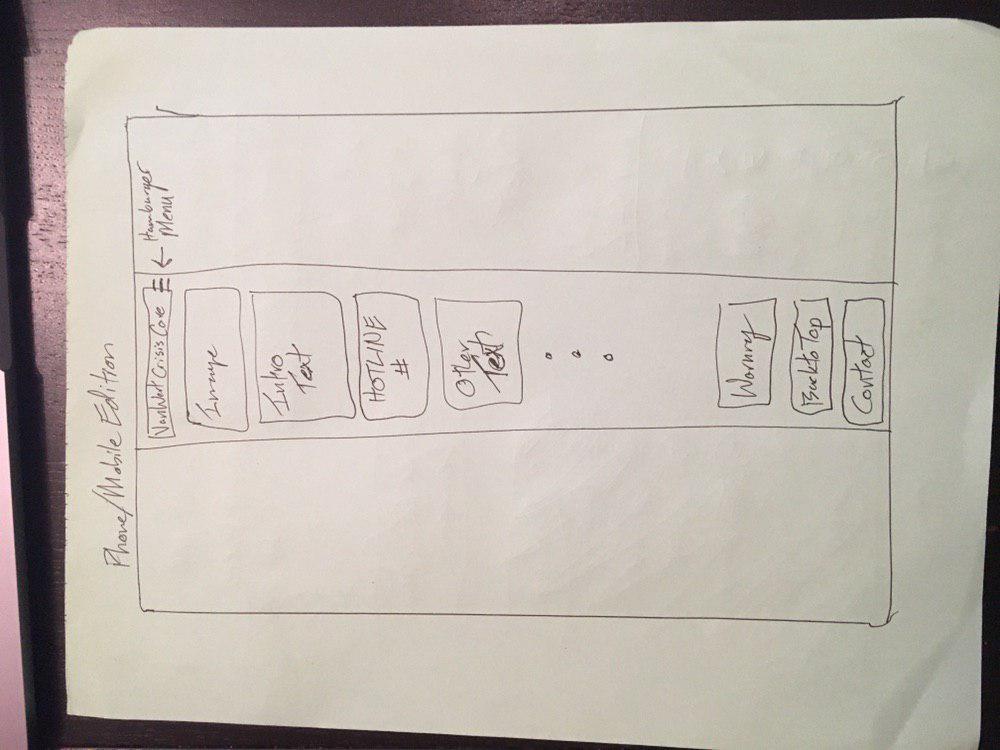 Phone/Mobile Edition
VanWert Crisis Care
← Hamburger
Menu
Image
Intro
Text
HOTLINE
#
Other
Text
Warning
Back to Top
Contact